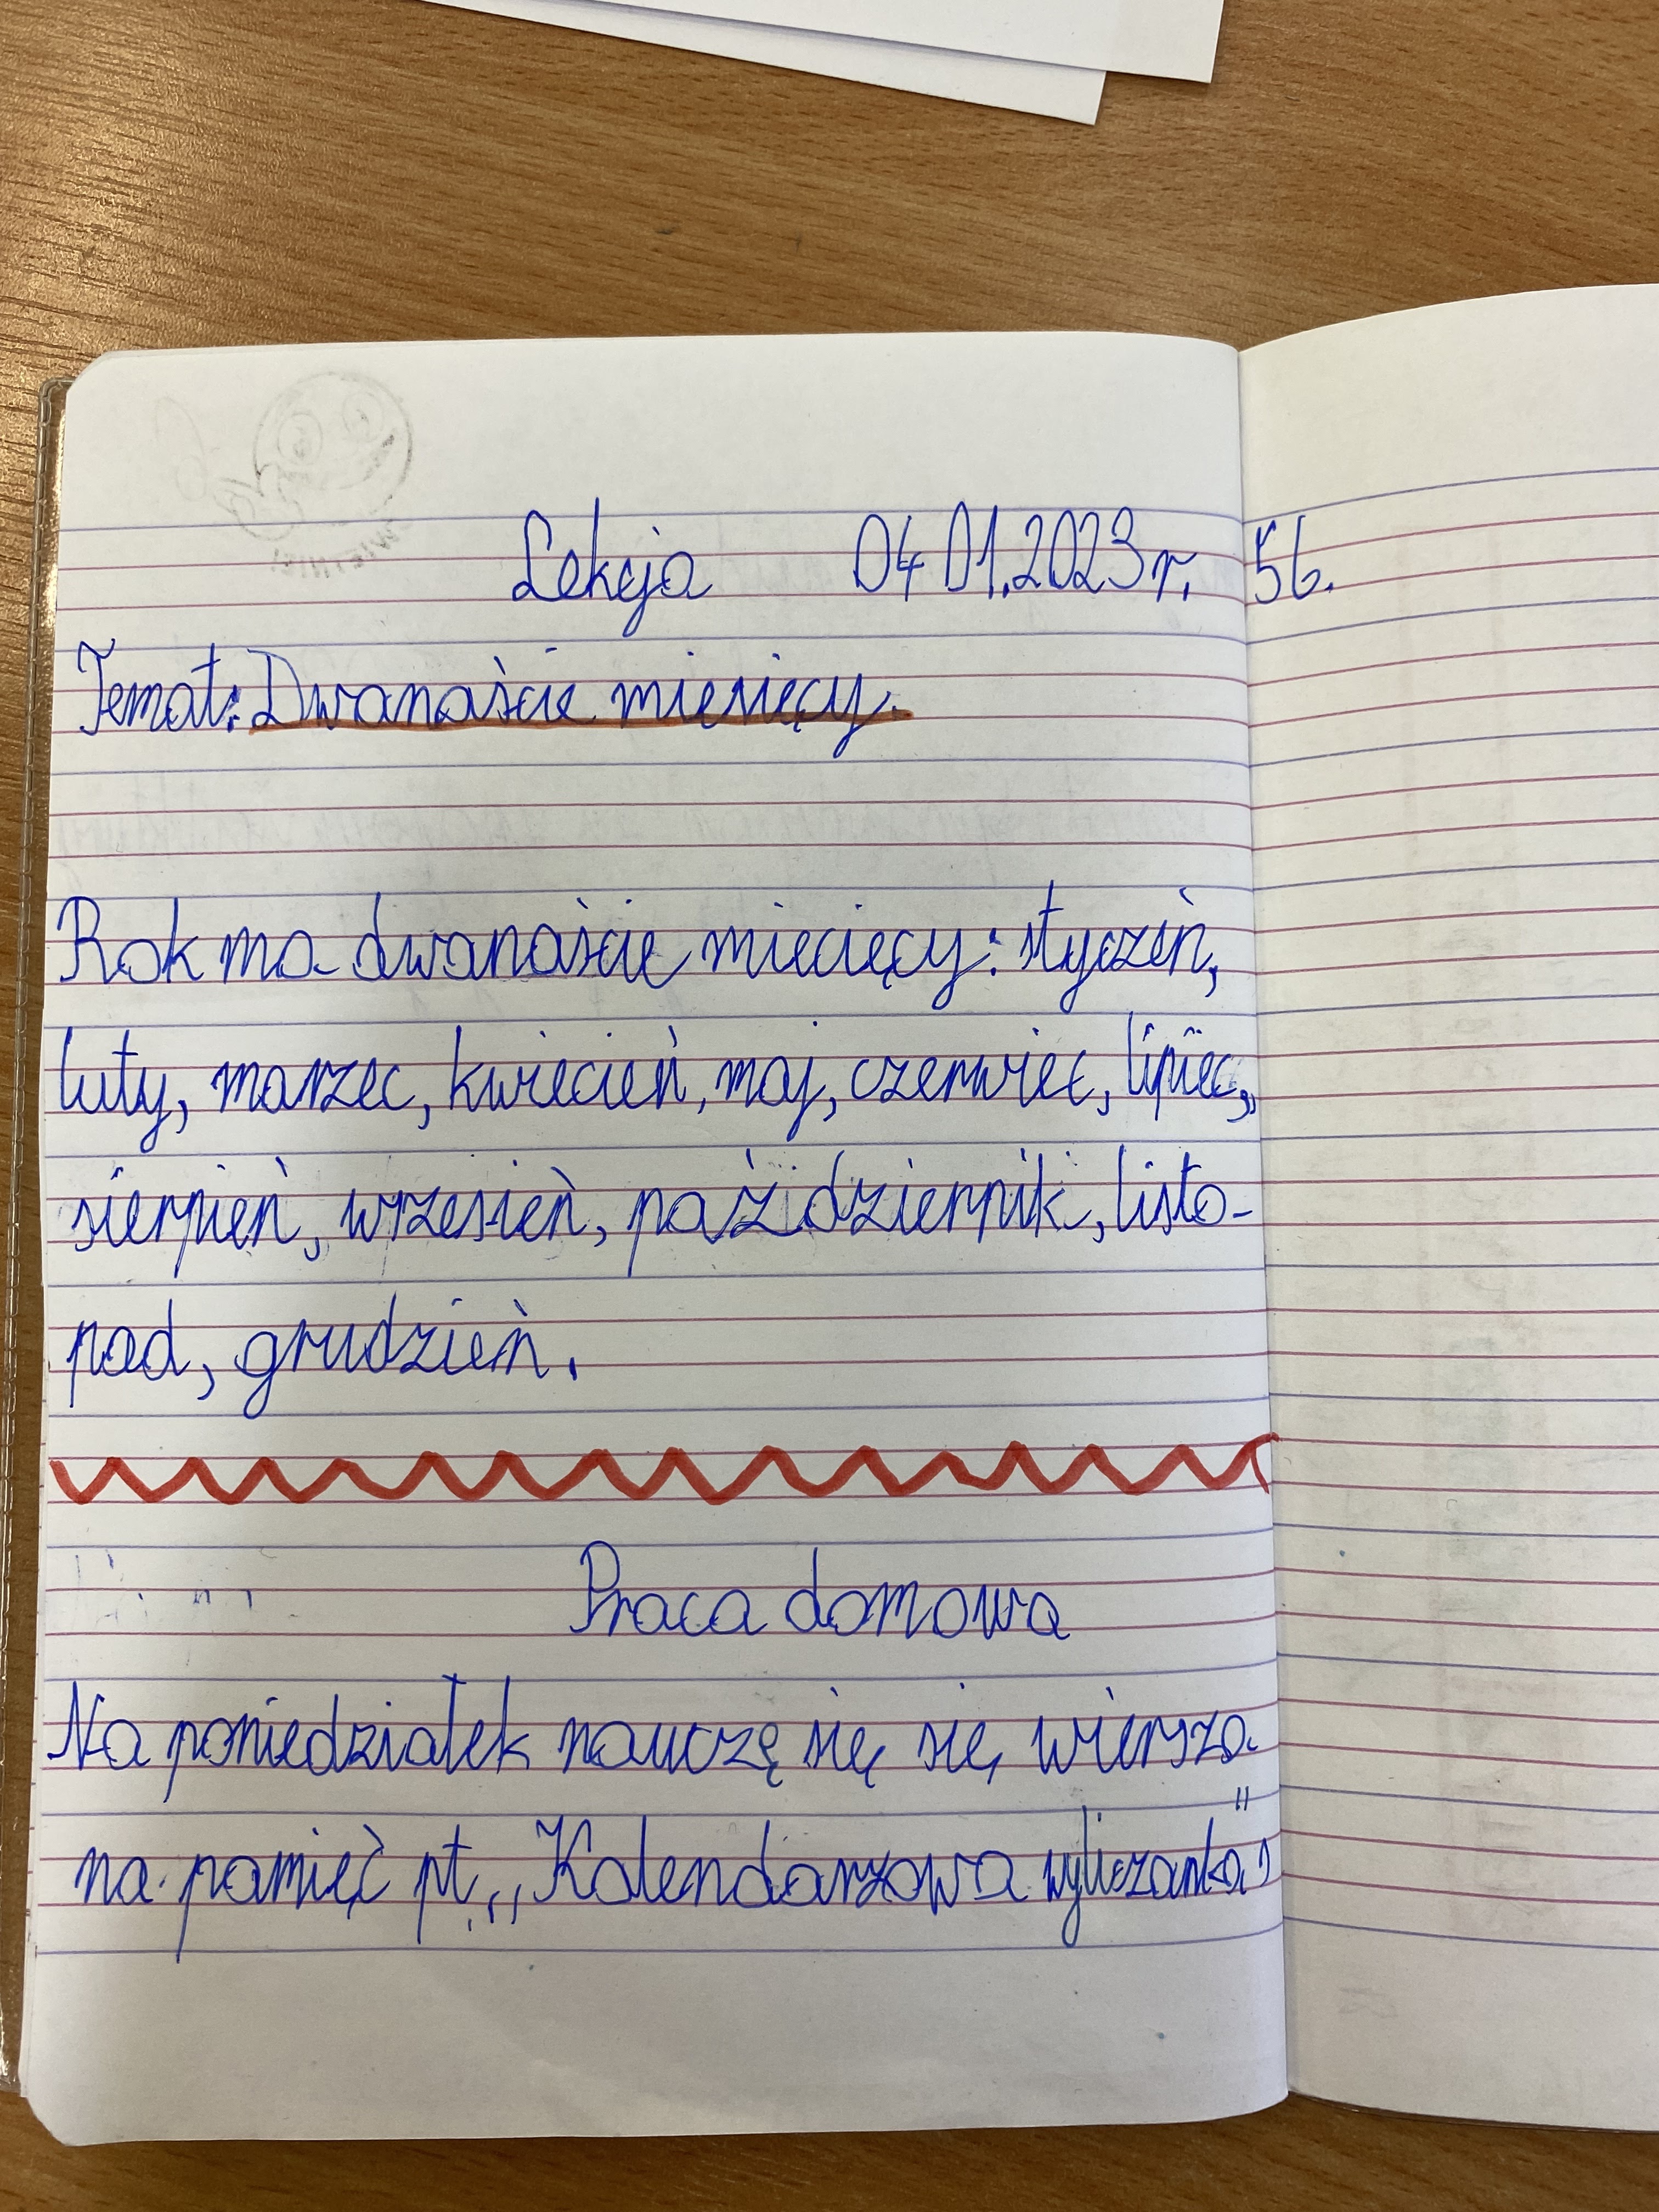 Lekcja 04 01.2023r. 56.
Temat: Dwanaście miesięcy.
Rok ma dwanaście miecięcy: styczeń,
luty, marzec, kwiecień, maj, czerwiec, lipiec,
sierpień, wrzesień, październik, listo-
pad, grudzień.
Praca domowa
Na poniedziałek nauczę się się wiersza
na pamięć pt. „Kalendarzowa wyliczanka"